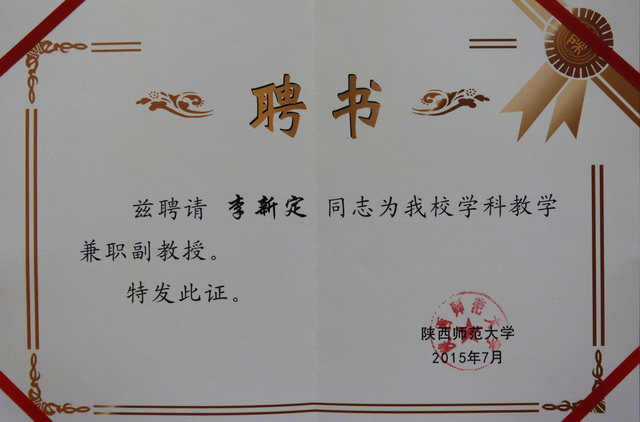 聘书
兹聘请 李新定 同志为我校学科教学
兼职副教授。
特发此证。
陕西师范大学
2015年7月